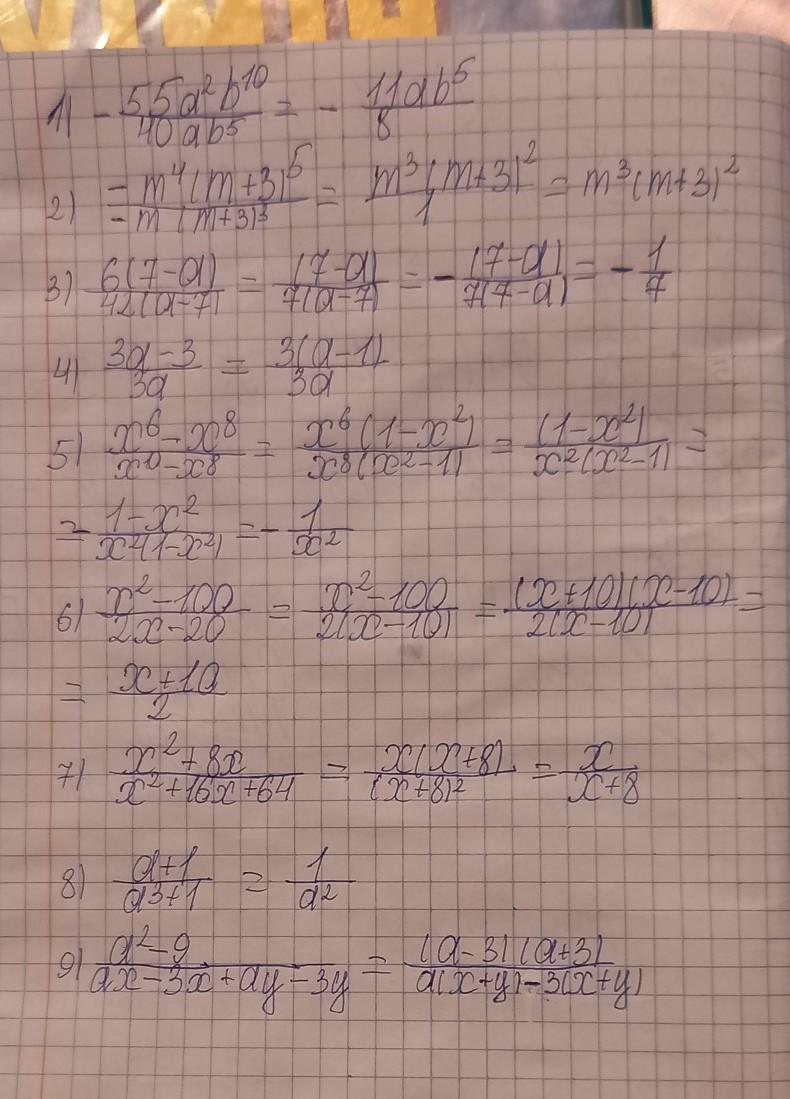 1) -55a²b¹⁰/40ab⁵ = - 11ab⁵/8
2) -m⁴(m+3)⁵/-m(m+3)³ = m³(m+3)²/1 = m³(m+3)²
3) 6(7-a)/42(a-7) = (7-a)/7(a-7) = -(7-a)/7(7-a) = -1/7
4) 3a-3/3a = 3(a-1)/3a
5) x⁶-x⁸/x¹⁰-x⁸ = x⁶(1-x²)/x⁸(x²-1) = (1-x²)/x²(x²-1) =
= -1-x²/x²(1-x²) = -1/x²
6) x²-100/2x-20 = x²-100/2(x-10) = (x+10)(x-10)/2(x-10) =
= x+10/2
7) x²+8x/x²+16x+64 = x(x+8)/(x+8)² = x/x+8
8) a+1/a³+1 = 1/a²
9) a²-9/ax-3x+ay-3y = (a-3)(a+3)/a(x+y)-3(x+y)